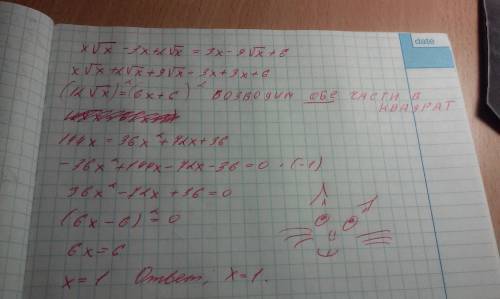 date
x√x - 3x + 2√x = 3x - 9√x + 6
x√x + 2√x + 9√x - 3x + 3x + 6
(12√x)² = (6x + 6)² возводим обе части в квадрат
144x = 36x² + 72x + 36
-36x² + 144x - 72x - 36 = 0 · (-1)
36x² - 72x + 36 = 0
(6x - 6)² = 0
6x = 6
x = 1 Ответ: x = 1.